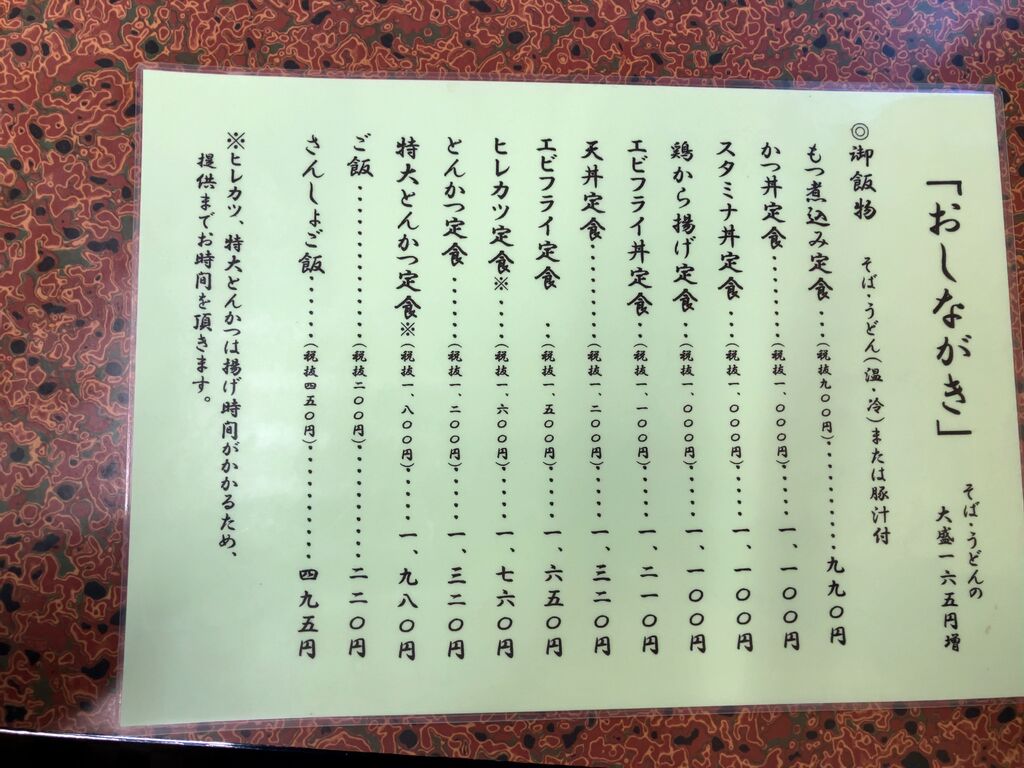 「おしながき」
そば・うどんの
大盛一六五円増
◎御飯物 そば・うどん(温・冷)または豚汁付
もつ煮込み定食…(税抜九〇〇円)………九九〇円
かつ丼定食………(税抜一、〇〇〇円)……一、一〇〇円
スタミナ丼定食…(税抜一、〇〇〇円)……一、一〇〇円
鶏から揚げ定食…(税抜一、〇〇〇円)……一、一〇〇円
エビフライ丼定食…(税抜一、一〇〇円)……一、二一〇円
天丼定食………(税抜一、二〇〇円)……一、三二〇円
エビフライ定食 …(税抜一、五〇〇円)……一、六五〇円
ヒレカツ定食※…(税抜一、六〇〇円)……一、七六〇円
とんかつ定食 ……(税抜一、二〇〇円)……一、三二〇円
特大とんかつ定食※(税抜一、八〇〇円)……一、九八〇円
ご飯……………(税抜二〇〇円)………二二〇円
さんしょご飯……(税抜四五〇円)………四九五円
※ヒレカツ、特大とんかつは揚げ時間がかかるため、
提供までお時間を頂きます。